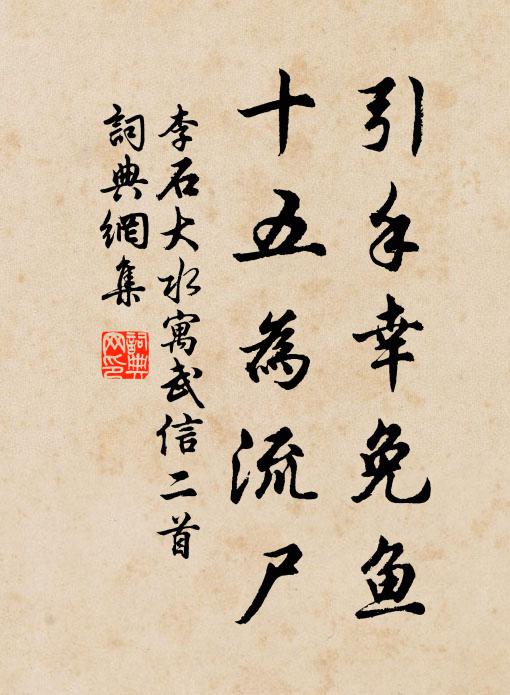 引手幸免鱼
十五為流尸
李石大水寓武信二首
詞典網集
詞典網印